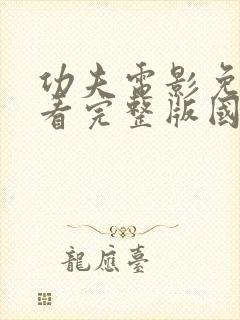 功夫電影免
看完整版國
龍應臺